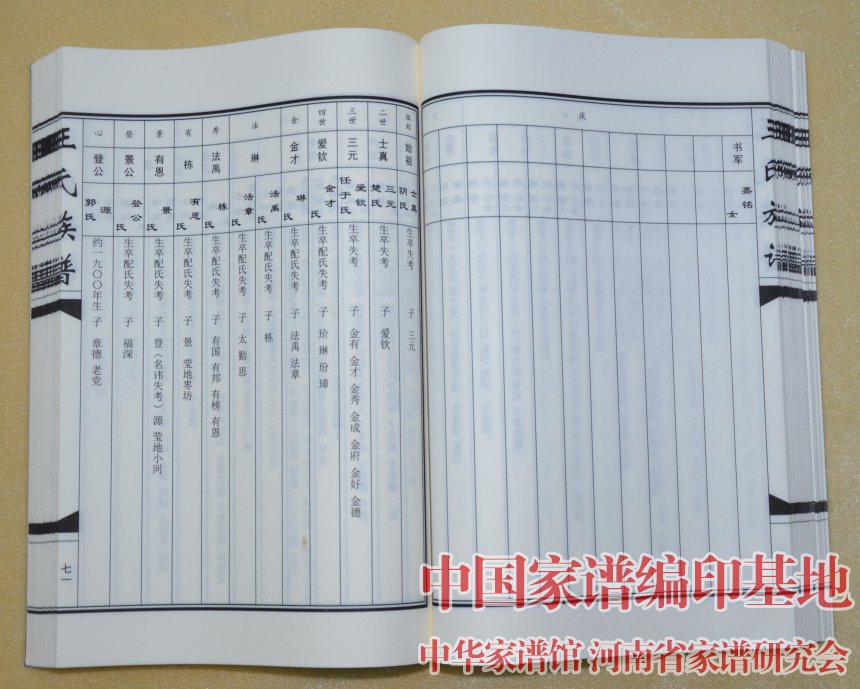 王氏族谱
庆
书军
嘉铭
女
始祖
士真
阴氏
生卒失考
子 三元
二世
士真
三元
楚氏
生卒失考
子 爱钦
三世
三元
爱钦
任于氏
生卒失考
子 金有 金才 金秀 金成 金府 金好 金德
四世
爱钦
金才
氏
生卒配氏失考
子 玠 琳 玢 璋
金
金才
琳
氏
生卒配氏失考
子 法禹 法章
法
琳
法禹
氏
生卒配氏失考
子 栋
法章
氏
生卒配氏失考
子 太 勤 思
秀
法禹
栋
氏
生卒配氏失考
子 有国 有邦 有榜 有恩
有
栋
有恩
氏
生卒配氏失考
子 景 莹地枣坊
景
有恩
景
氏
生卒配氏失考
子 登（名讳失考）源 莹地小河
登
景公
登公
氏
生卒配氏失考
子 福深
心
登公
源
郭氏
约一九〇〇年生
子 章德 老党
王氏族谱
七一
中国家谱编印基地
中华家谱馆 河南省家谱研究会